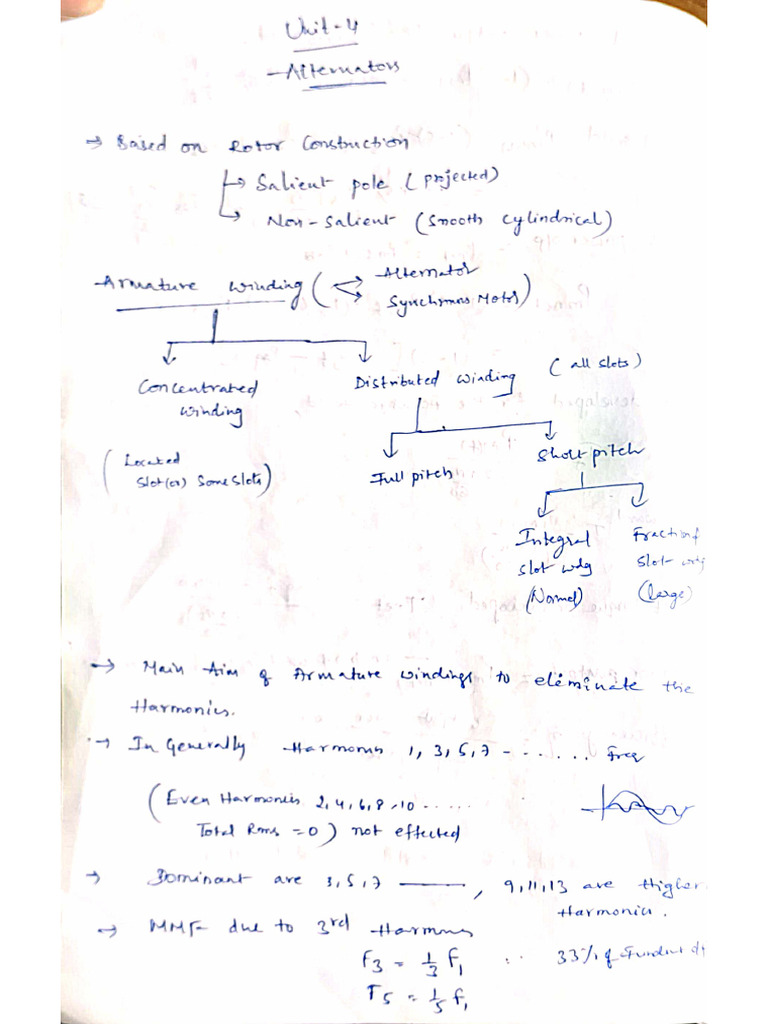 Unit-4
Alternators
→ Based on Rotor Construction
→ Salient pole (projected)
→ Non-Salient (Smooth cylindrical)
Armature winding (→ Alternator
→ Synchronous Motor)
Concentrated winding
Distributed winding (all slots)
(Located
slot(or) Some slots)
Full pitch
Short pitch
Integral
slot wdg
(Normal)
slot wdg
(large)
→ Main Aim of Armature windings to eleminate the
Harmonics.
→ In Generally Harmonics 1, 3, 5, 7 - ...... Freq
(Even Harmonics 2, 4, 6, 8, 10 .....
Total Rms = 0) not effected
→ Dominant are 3, 5, 7 ——, 9, 11, 13 are Higher
Harmonics.
→ MMF due to 3rd Harmons
F3 = 1/3 F1 33% of
F5 = 1/5 F1